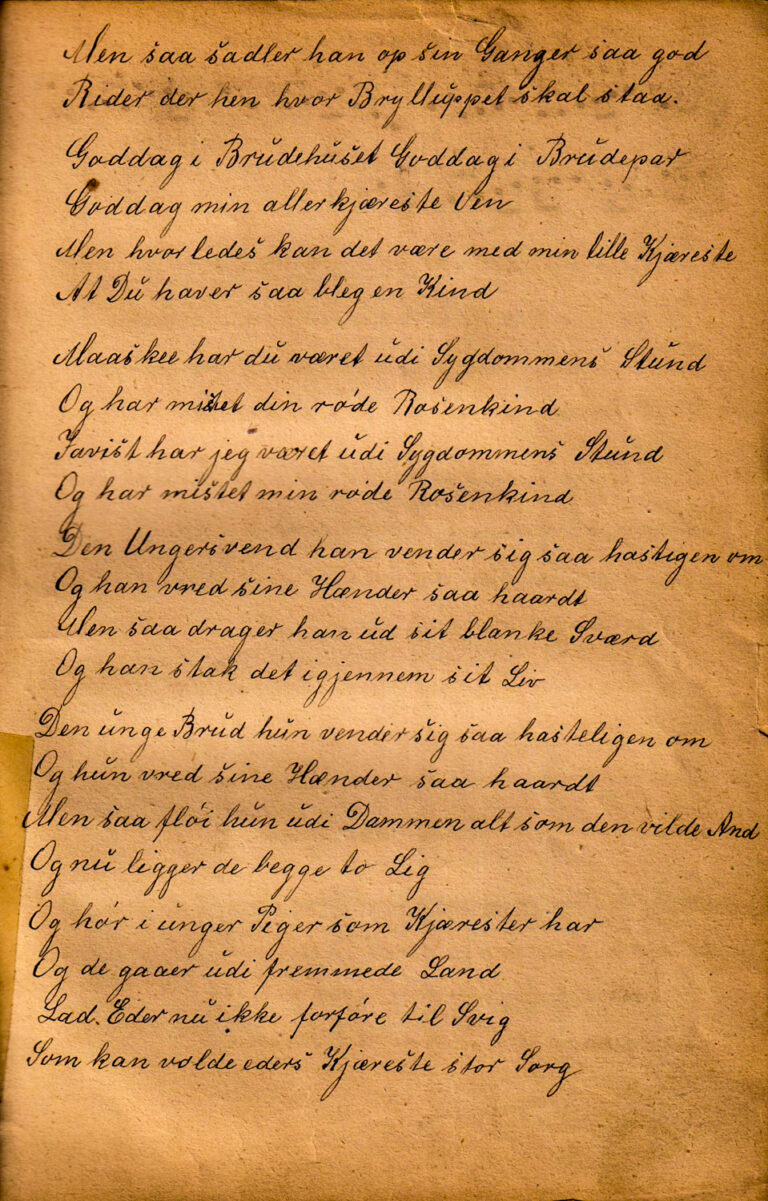 Men saa sadler han op sin Ganger saa god
Rider der hen hvor Brylluppet skal staa.
Goddag i Brudehuset Goddag i Brudepar
Goddag min allerkjæreste Ven
Men hvorledes kan det være med min lille Kjæreste
At Du haver saa bleg en Kind
Maaskee har du været udi Sygdommens Stund
Og har mistet din røde Rosenkind
Javist har jeg været udi Sygdommens Stund
Og har mistet min røde Rosenkind
Den Ungersvend han vender sig saa hastigen om
Og han vred sine Hænder saa haardt
Men saa drager han ud sit blanke Sværd
Og han stak det igjennem sit Liv
Den unge Brud hun vender sig saa hasteligen om
Og hun vred sine Hænder saa haardt
Men saa fløi hun udi Dammen alt som den vilde And
Og nu ligger de begge to Lig
Og hør i unger Piger som Kjærester har
Og de gaaer udi fremmede Land
Lad. Eder nu ikke forføre til Svig
Som kan volde eders Kjæreste stor Sorg